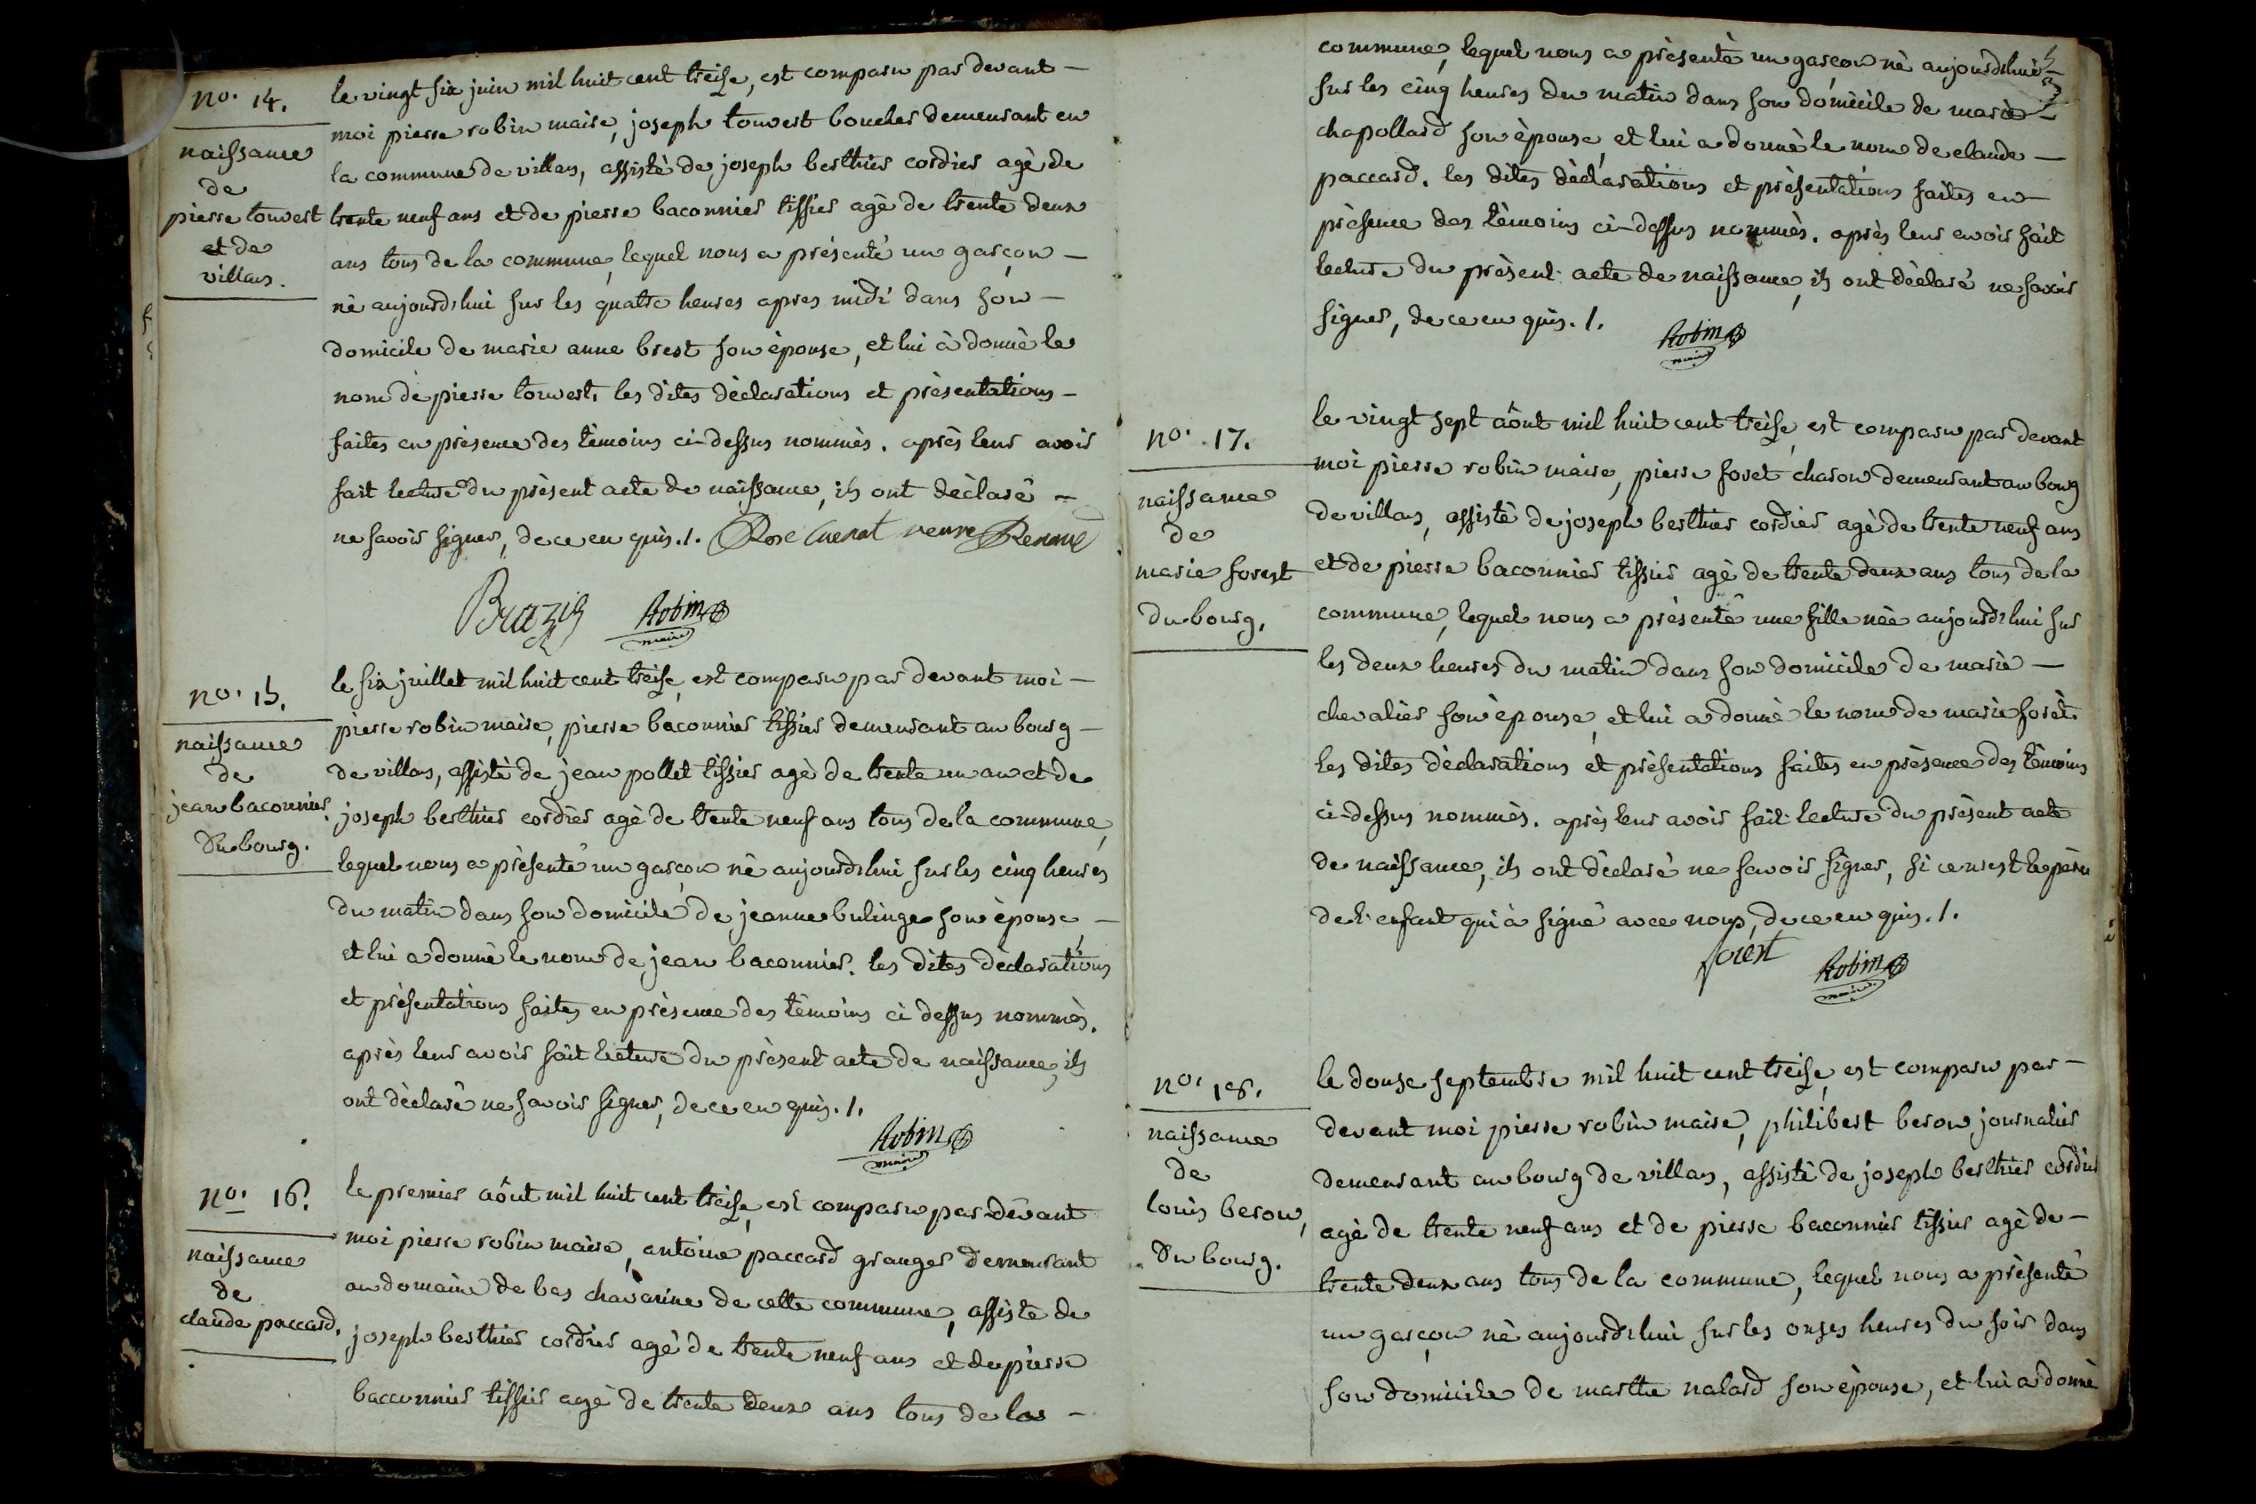 no. 14.
naissance
de
pierre touvest
et de
villars.
le vingt six juin mil huit cent treise, est comparu par devant –
moi pierre robin maire, joseph touvest boucher demeurant en
la commune de villars, assistè de joseph berthier cordier agè de
trente neuf ans et de pierre baconnier tissier agè de trente deux
ans tous de la commune, lequel nous a présenté un garçon –
nè aujourd'hui sur les quatre heures apres midi dans son –
domicile de marie anne brest son èpouse, et lui à donnè le
nom de pierre touvest. les dites dèclarations et prèsentations –
faites en prèsence des tèmoins ci-dessus nommès. après leur avoir
fait lecture du prèsent acte de naissance, ils ont dèclarè –
ne savoir signer, de ce en quis. /. Rose Cuenat veuve Renaud
Brazig Robin
maire
no. 15.
naissance
de
jean baconnier.
du bourg.
le six juillet mil huit cent treise, est comparu par devant moi –
pierre robin maire, pierre baconnier tissier demeurant au bourg –
de villars, assistè de jean pollet tissier agè de trente un an et de
joseph berthier cordier agè de trente neuf ans tous de la commune,
lequel nous a prèsenté un garçon nè aujourd'hui sur les cinq heures
du matin dans son domicile de jeanne bulinge son èpouse, –
et lui a donnè le nom de jean baconnier. les dites dèclarations
et prèsentations faites en prèsence des tèmoins ci dessus nommès.
après leur avoir fait lecture du prèsent acte de naissance, ils
ont dèclarè ne savoir signer, de ce en quis. /.
Robin
maire
no. 16.
naissance
de
claude paccard.
le premier aôut mil huit cent treise, est comparu par devant
moi pierre robin maire, antoine paccard granger demeurant
au domaine de bas chavarine de cette commune, assistè de
joseph berthier cordier agè de trente neuf ans et de pierre
baconnier tissier agè de trente deux ans tous de la –
commune, lequel nous a prèsentè un garçon nè aujourd'hui
sur les cinq heures du matin dans son domicile de marie
chapollard son èpouse, et lui a donnè le nom de claude –
paccard. les dites dèclarations et prèsentations faites en –
prèsence des tèmoins ci-dessus nommès. après leur avoir fait
lecture du prèsent acte de naissance, ils ont dèclarè ne savoir
signer, de ce en quis. /.
Robin
maire
no. 17.
naissance
de
marie forest
du bourg.
le vingt sept aôut mil huit cent treise, est comparu par devant
moi pierre robin maire, pierre foret charon demeurant au bourg
de villars, assistè de joseph berthier cordier agè de trente neuf ans
et de pierre baconnier tissier agè de trente deux ans tous de la
commune, lequel nous a prèsentè une fille nèe aujourd'hui sur
les deux heures du matin dans son domicile de marie –
chevalier son èpouse, et lui a donnè le nom de marie forèt.
les dites dèclarations et prèsentations faites en prèsence des tèmoins
ci-dessus nommès. après leur avoir fait lecture du prèsent acte
de naissance, ils ont dèclarè ne savoir signer, si ce n'est le père
de l'enfant qui à signè avec nous, de ce en quis. /.
forest Robin
maire
no. 18.
naissance
de
louis beron,
du bourg.
le douse septembre mil huit cent treise, est comparu par –
devant moi pierre robin maire, philibert beron journalier
demeurant au bourg de villars, assistè de joseph berthier cordier
agè de trente neuf ans et de pierre baconnier tissier agè de –
trente deux ans tous de la commune, lequel nous a prèsentè
un garçon nè aujourd'hui sur les onses heures du soir dans
son domicile de marthe nalard son èpouse, et lui a donnè